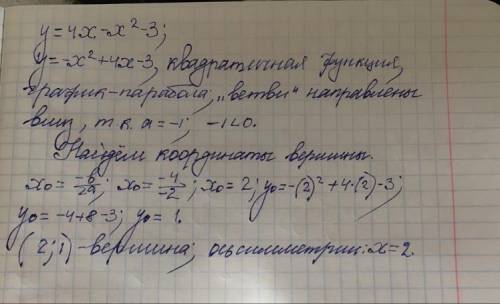 y = 4x - x² - 3;
y = -x² + 4x - 3, квадратичная функция,
график - парабола, „ветви" направлены
вниз, т.к. a = -1; -1 < 0.
Найдём координаты вершины.
x₀ = -b/2a; x₀ = -4/-2; x₀ = 2; y₀ = -(2)² + 4·(2) - 3;
y₀ = -4 + 8 - 3; y₀ = 1.
(2; 1) - вершина; ось симметрии: x = 2.